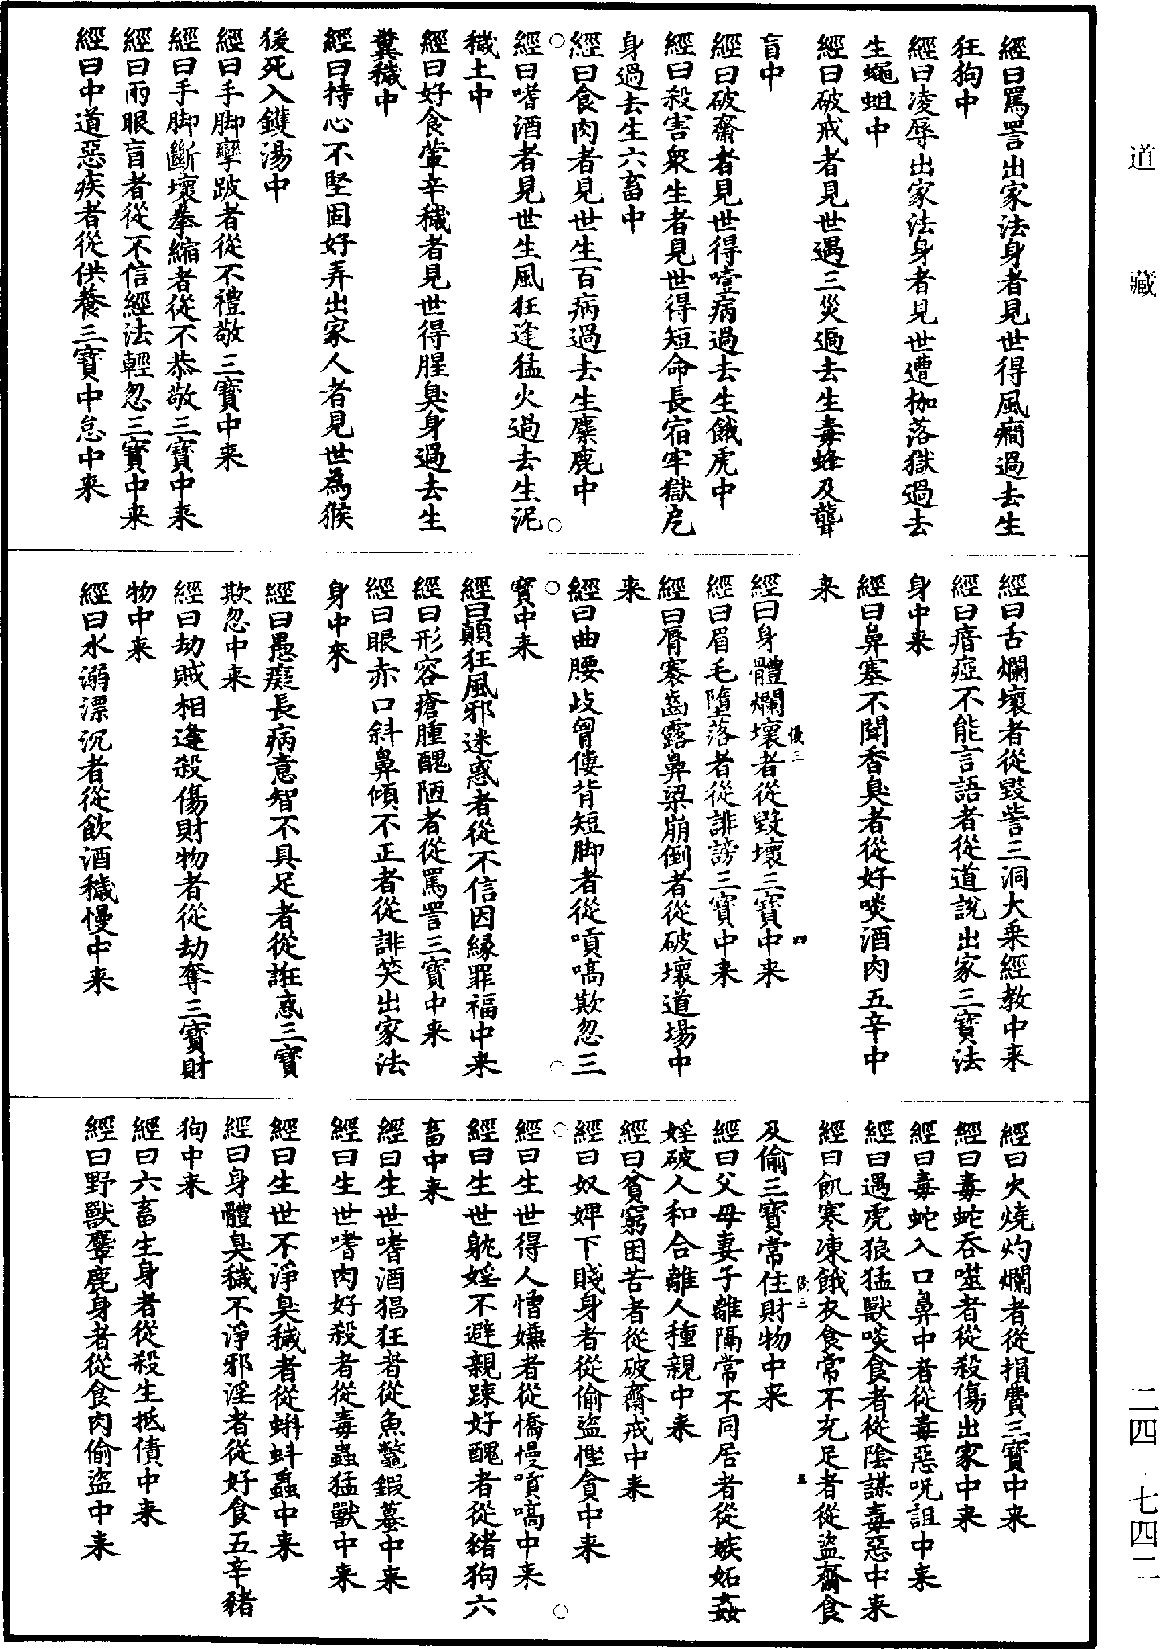 道藏
二四 七四二
經曰罵詈出家法身者見世得風癎過去生
狂狗中
經曰凌辱出家法身者見世遭枷落獄過去
生蠅蛆中
經曰破戒者見世遇三災過去生毒蜂及聾
盲中
經曰破齋者見世得噎病過去生餓虎中
經曰殺害衆生者見世得短命長宿牢獄危
身過去生六畜中
經曰食肉者見世生百病過去生麋鹿中
經曰嗜酒者見世生風狂逢猛火過去生泥
穢土中
經曰好食葷辛穢者見世得腥臭身過去生
糞穢中
經曰持心不堅固好弄出家人者見世為猴
後死入鑊湯中
經曰手脚攣跛者從不禮敬三寶中来
經曰手脚斷壞拳縮者從不恭敬三寶中来
經曰兩眼盲者從不信經法輕忽三寶中来
經曰中道惡疾者從供養三寶中怠中来
經曰舌爛壞者從毀訾三洞大乗經教中来
經曰瘖瘂不能言語者從道說出家三寳法
身中来
經曰鼻塞不聞香臭者從好啖酒肉五辛中
来
經曰身體爛壞者從毀壞三寶中来
經曰眉毛墮落者從誹謗三寳中来
經曰脣褰齒露鼻梁崩倒者從破壞道場中
来
經曰曲腰歧曾僂背短脚者從嗔嗃欺忽三
寳中来
經曰顛狂風邪迷惑者從不信因緣罪福中来
經曰形容瘡腫醜陋者從罵詈三寶中来
經曰眼赤口斜鼻傾不正者從誹笑出家法
身中來
經曰愚癡長病意智不具足者從誑惑三寳
欺忽中来
經曰劫賊相逢殺傷財物者從劫奪三寳財
物中来
經曰水溺漂沉者從飲酒穢慢中来
經曰火燒灼爛者從損費三寳中来
經曰毒蛇吞噬者從殺傷出家中来
經曰毒蛇入口鼻中者從毒惡呪詛中来
經曰遇虎狼猛獸啖食者從陰謀毒惡中来
經曰飢寒凍餓衣食常不充足者從盗齋食
及偷三寶常住財物中来
經曰父母妻子離隔常不同居者從嫉妬姦
婬破人和合離人種親中来
經曰貧窮困苦者從破齋戒中来
經曰奴婢下賤身者從偷盗慳貪中来
經曰生世得人憎嫌者從憍慢嗔嗃中来
經曰生世躭婬不避親踈好醜者從豬狗六
畜中来
經曰生世嗜酒猖狂者從魚鼈鍜蟇中来
經曰生世嗜肉好殺者從毒蟲猛獸中来
經曰生世不淨臭穢者從蝌蚪蟲中来
經曰身體臭穢不淨邪淫者從好食五辛豬
狗中来
經曰六畜生身者從殺生抵債中来
經曰野獸麞鹿身者從食肉偷盗中来